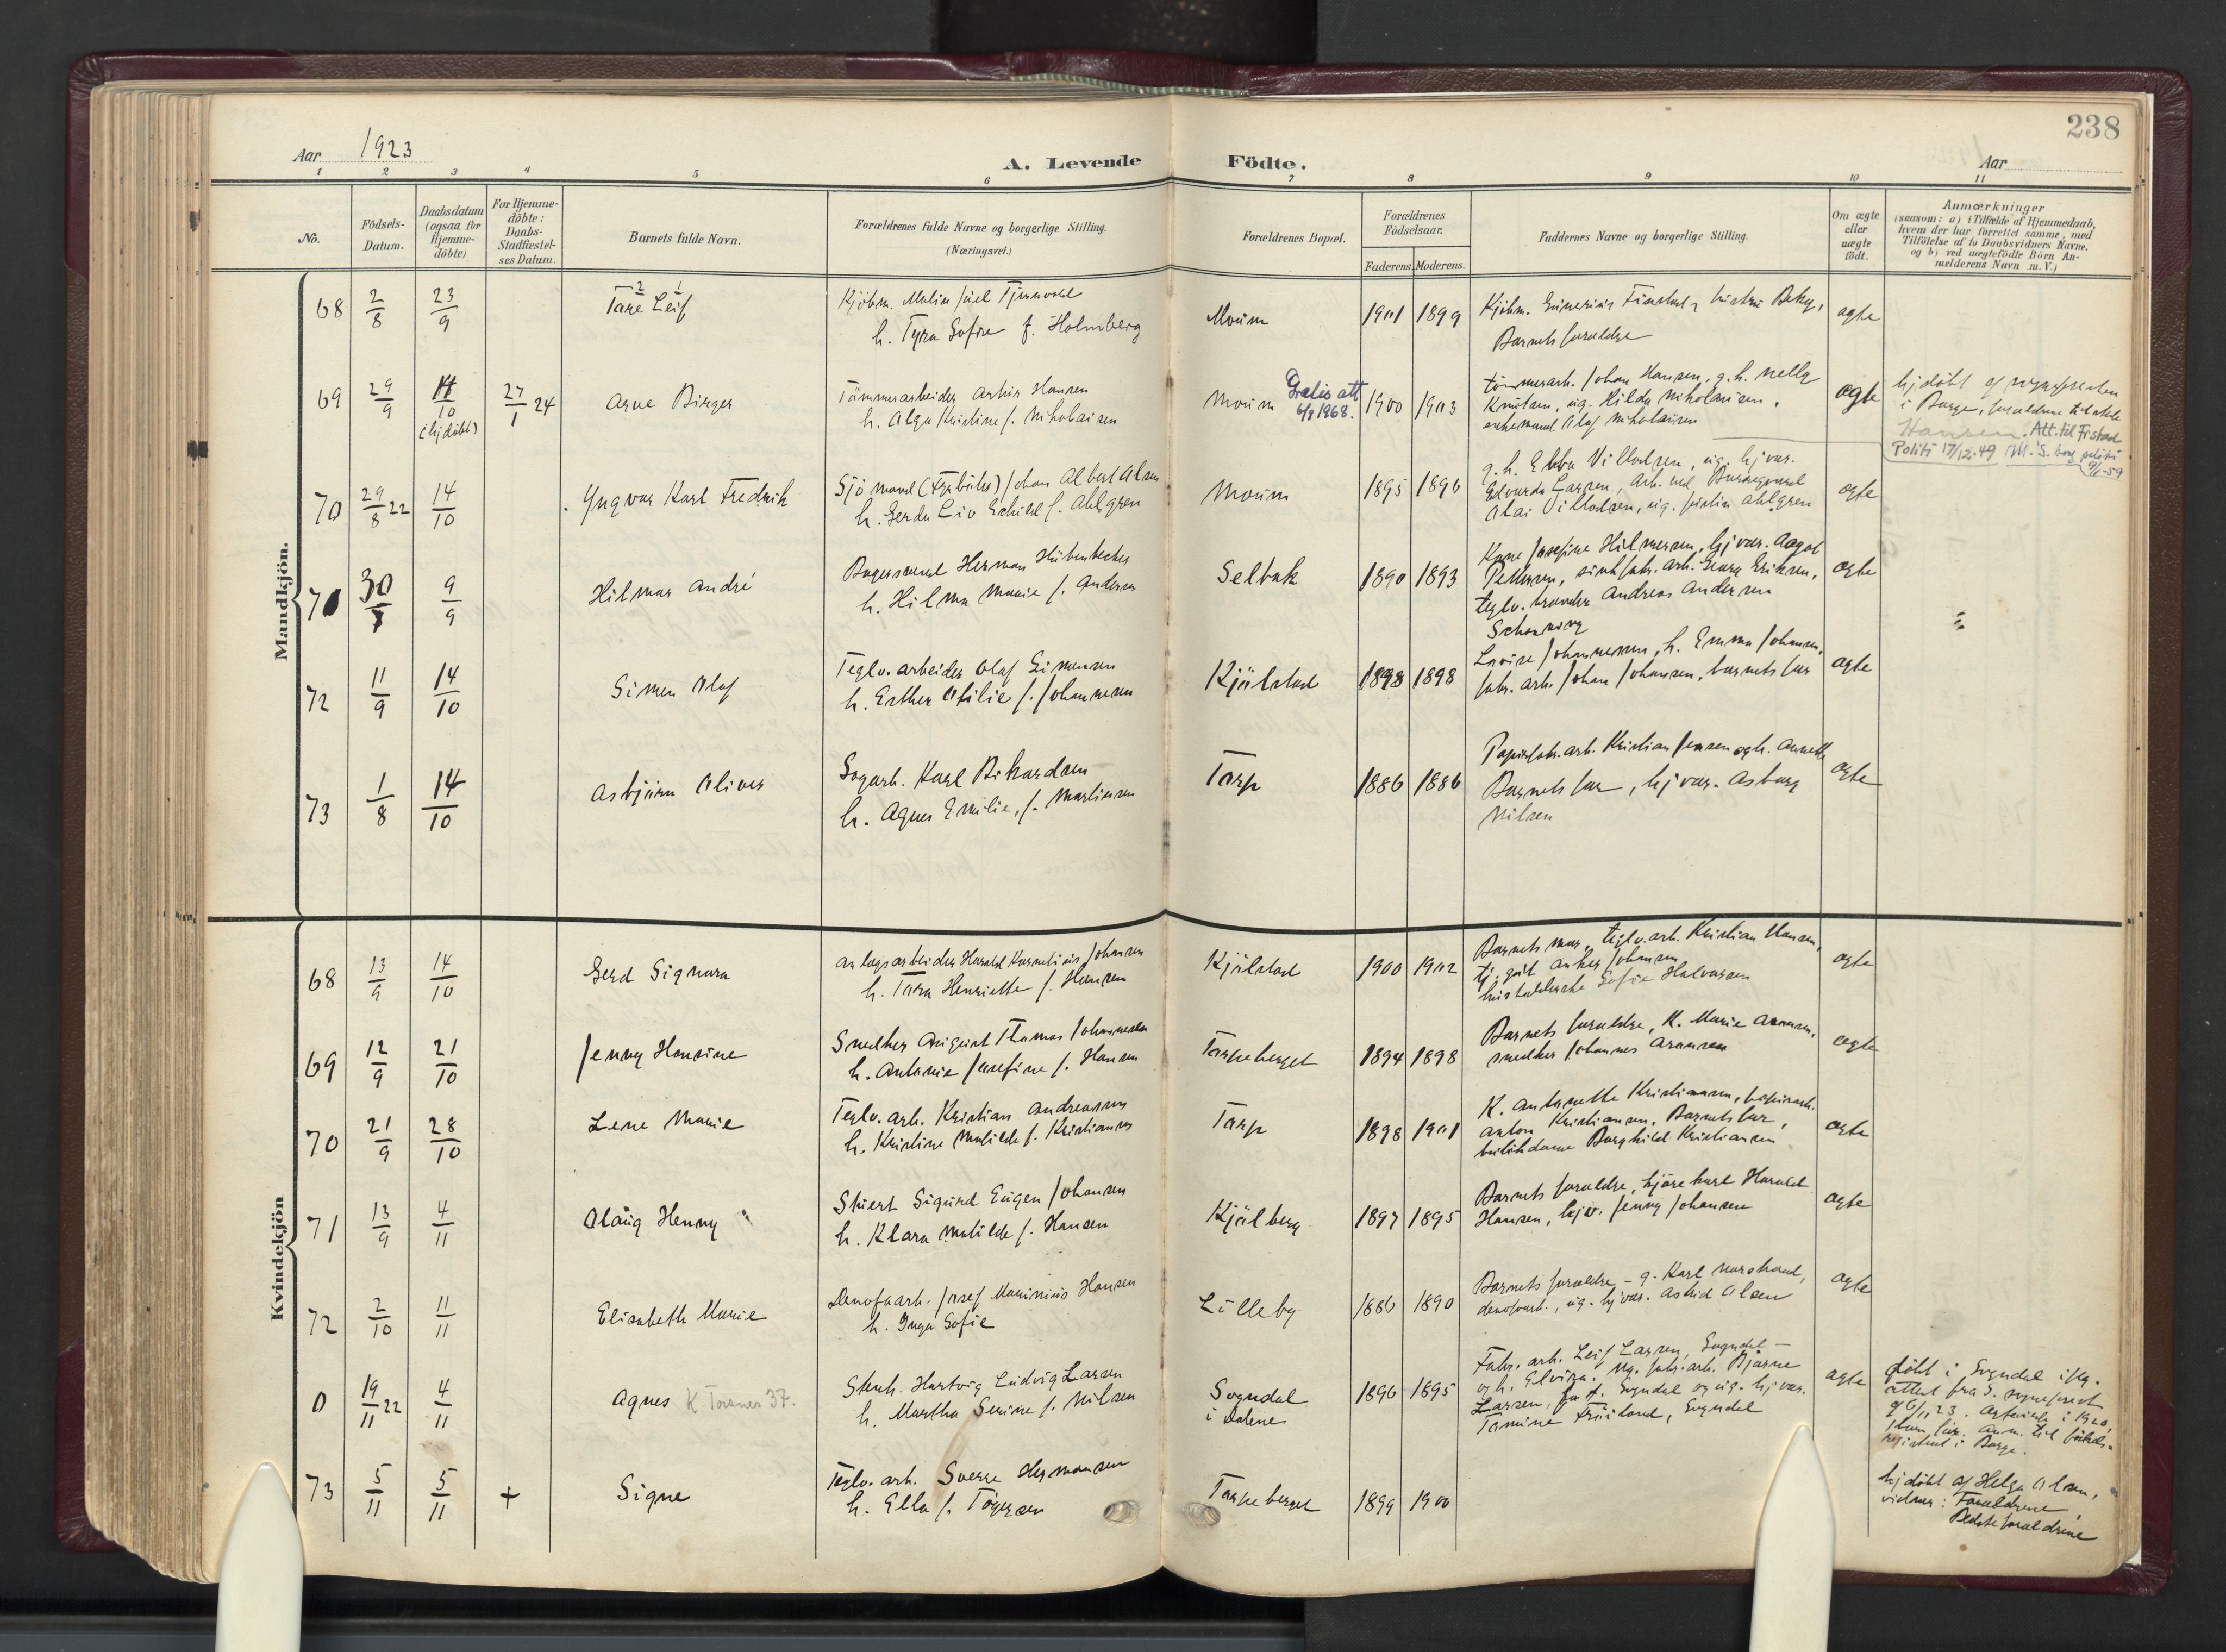 238
Aar 1923
A. Levende Födte.
Aar
1 2 3 4 5 6 7 8 9 10 11
No.
Födsels-
Datum.
Daabsdatum
(ogsaa for
Hjemme-
döbte)
For Hjemme-
döbte:
Daabs-
Stadfæstel-
ses Datum.
Barnets fulde Navn.
Forældrenes fulde Navne og borgerlige Stilling.
(Næringsvei.)
Forældrenes Bopæl.
Forældrenes
Födselsaar.
Faderens. Moderens.
Faddernes Navne og borgerlige Stilling.
Om ægte
eller
uægte
født.
Anmærkninger
(saasom: a) i Tilfælde af Hjemmedaab,
hvem der har forrettet samme, med
Tilföielse af to Daabsvidners Navne,
og b) ved uægtefödte Börn An-
melderens Navn m. V.)
Mandkjön.
68 2/8 23/9 Tore Leif 2 1
Kjöbm.
h. Tyra Sofie f. Holmberg
Moum 1901 1899
Barnets forældre
ægte
69 29/9 14/10 (hjdöbt) 27/1 24 Arne Birger
Tömmerarbeider Artur Hansen
h. Olga Kristine f. Nikolaisen
Moum Gratis att. 6/9 1968. 1900 1903
tömmerarb. Johan Hansen, g. h. Nelly
Knutsen, ug. Hilda Nikolaisen,
enkemand Olaf Nikolaisen
ægte
hjdöbt af sognepresten
i Borge, forældrene tilstede
Hansen. Att. til Fr.stad
Politi 17/12-49
70 29/8 22 14/10 Yngvar Karl Fredrik
Sjömand (Fyrböter) Johan Albert Olsen
h. Gerda Liv Eskild f. Ahlgren
Moum 1895 1896
g. h. Ebba Villadsen, ug. hjvær.
Edvarda Larsen, Arb. ved
Olai Villadsen, ug. Ahlgren
ægte
71 30/7 9/9 Hilmar André
Bagersvend Herman Hübenbecker
h. Hilma Marie f. Andersen
Selbak 1890 1893
Kone Josefine Hilmersen, hjvær. Aagot
Pettersen, Georg Eriksen,
teglv. brænder Andreas Andersen
ægte
72 11/9 14/10 Simen Olaf
Teglv. arbeider Olaf Simensen
h. Esther Otilie f. Johannesen
Kjölstad 1898 1898
Lovise Johannesen, h. Emma Johansen,
fabr. arb. Johan Johansen, barnets far
ægte
73 1/8 14/10 Asbjörn Oliver
Sagarb. Karl Rikardsen
h. Agnes Emilie, f. Martinsen
Torp 1886 1886
Papirfabr. arb. Kristian Jensen og h. Annette
Barnets far, hjvær. Asborg
Nilsen
ægte
Kvindekjön
68 13/9 14/10 Gerd Signora
Anlægsarbeider Harald Kornelius Johansen
h. Tora Henriette f. Hansen
Kjölstad 1900 1902
Barnets mor, teglv. arb. Kristian Hansen,
tj. gut Anker Johansen
husholderske Sofie Halvorsen
ægte
69 12/9 21/10 Jenny Hansine
Snedker August Thomas Johannesen
h. Antonie Josefine f. Hansen
Torpeberget 1894 1898
Barnets forældre, K. Marie Aronsen,
snedker Johannes Aronsen
ægte
70 21/9 28/10 Lene Marie
Teglv. arb. Kristian Andreassen
h. Kristine Matilde f. Kristiansen
Torp 1898 1901
K. Antonette Kristiansen, papirarb.
Anton Kristiansen, Barnets far,
butikdame Borghild Kristiansen
ægte
71 13/9 4/11 Olaug Henny
Stuert Sigurd Eugen Johansen
h. Klara Matilde f. Hansen
Kjölberg 1897 1895
Barnets forældre, kjörekarl Harald
Hansen, hjv. Jenny Johansen
ægte
72 2/10 11/11 Elisabeth Marie
Denofaarb. Josef Maurinius Hansen
h. Inga Sofie
Lilleby 1886 1890
Barnets forældre - g. Karl Norstrand,
denofaarb., ug. hjvær. Astrid Olsen
ægte
0 19/11 22 4/11 Agnes K. Torsnes 37.
Stenh. Hartvig Ludvig Larsen
h. Martha Serine f. Nilsen
Sogndal
i Dalene 1896 1895
Fabr. arb. Leif Larsen, Sogndal -
og h. Elvira. Ug. fabr. arb. Bjarne
Larsen, Sogndal og ug. hjvær.
Tomine Fruland, Sogndal
ægte
döbt i Sogndal iflg.
attest fra S. sogneprest
af 6/11 23.
i Borge.
73 5/11 5/11 + Signe
Teglv. arb. Sverre Hermansen
h. Ella f. Tögersen
Torpeberget 1899 1900
hjdöbt af Helga Olsen,
vidner: Forældrene,
Bedsteforældrene